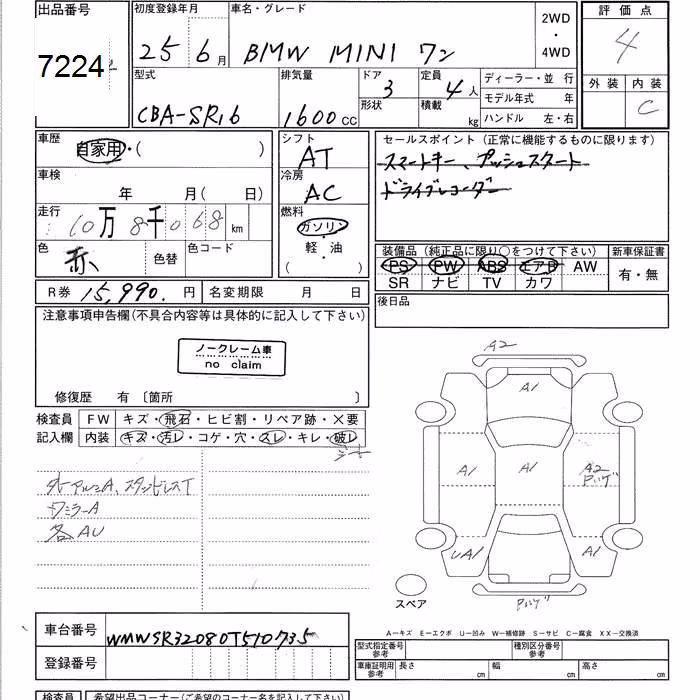 出品番号 初度登録年月 車名・グレード 評価点
7224 25年 6月 BMW MINI ワン 2WD・4WD 4
型式 排気量 ドア 定員 ディーラー・並行 外装 内装
CBA-SR16 1600CC 3 4人 モデル年式 年 C
形状 積載 kg ハンドル 左・右
車歴 自家用・( ) シフト セールスポイント（正常に機能するものに限ります）
AT スマートキー、プッシュスタート
車検 年 月(日) 冷房 AC ドライブレコーダー
走行 10万8千068km 燃料 ガソリン
色 赤 色替 色コード 軽・油 ( )
装備品（純正品に限り○をつけて下さい） 新車保証書
PS PW ABS エアB AW 有・無
SR ナビ TV カワ
R券 15,990.円 名変期限 月 日 後日品
注意事項申告欄(不具合内容等は具体的に記入して下さい)
ノークレーム車
no claim
修復歴 有 〔箇所 〕
検査員 FW キズ・飛石・ヒビ割・リペア跡・X要
記入欄 内装 キズ・汚レ・コゲ・穴・スレ・キレ・破レ
シート
ワミラーA
各AU
A2
A1
A1 A1 A2
Pハゲ
UA1 A1
スペア Pハゲ
A－キズ E－エクボ U－凹み W－補修跡 S－サビ C－腐食 XX－交換済
車台番号 WMWSR32080T510735
登録番号
型式指定番号 参考 種別区分番号 参考
車庫証明用 参考 長さ cm 幅 cm 高さ cm
検査員 希望出品コーナー(ご希望のコーナー名を記入して下さい)